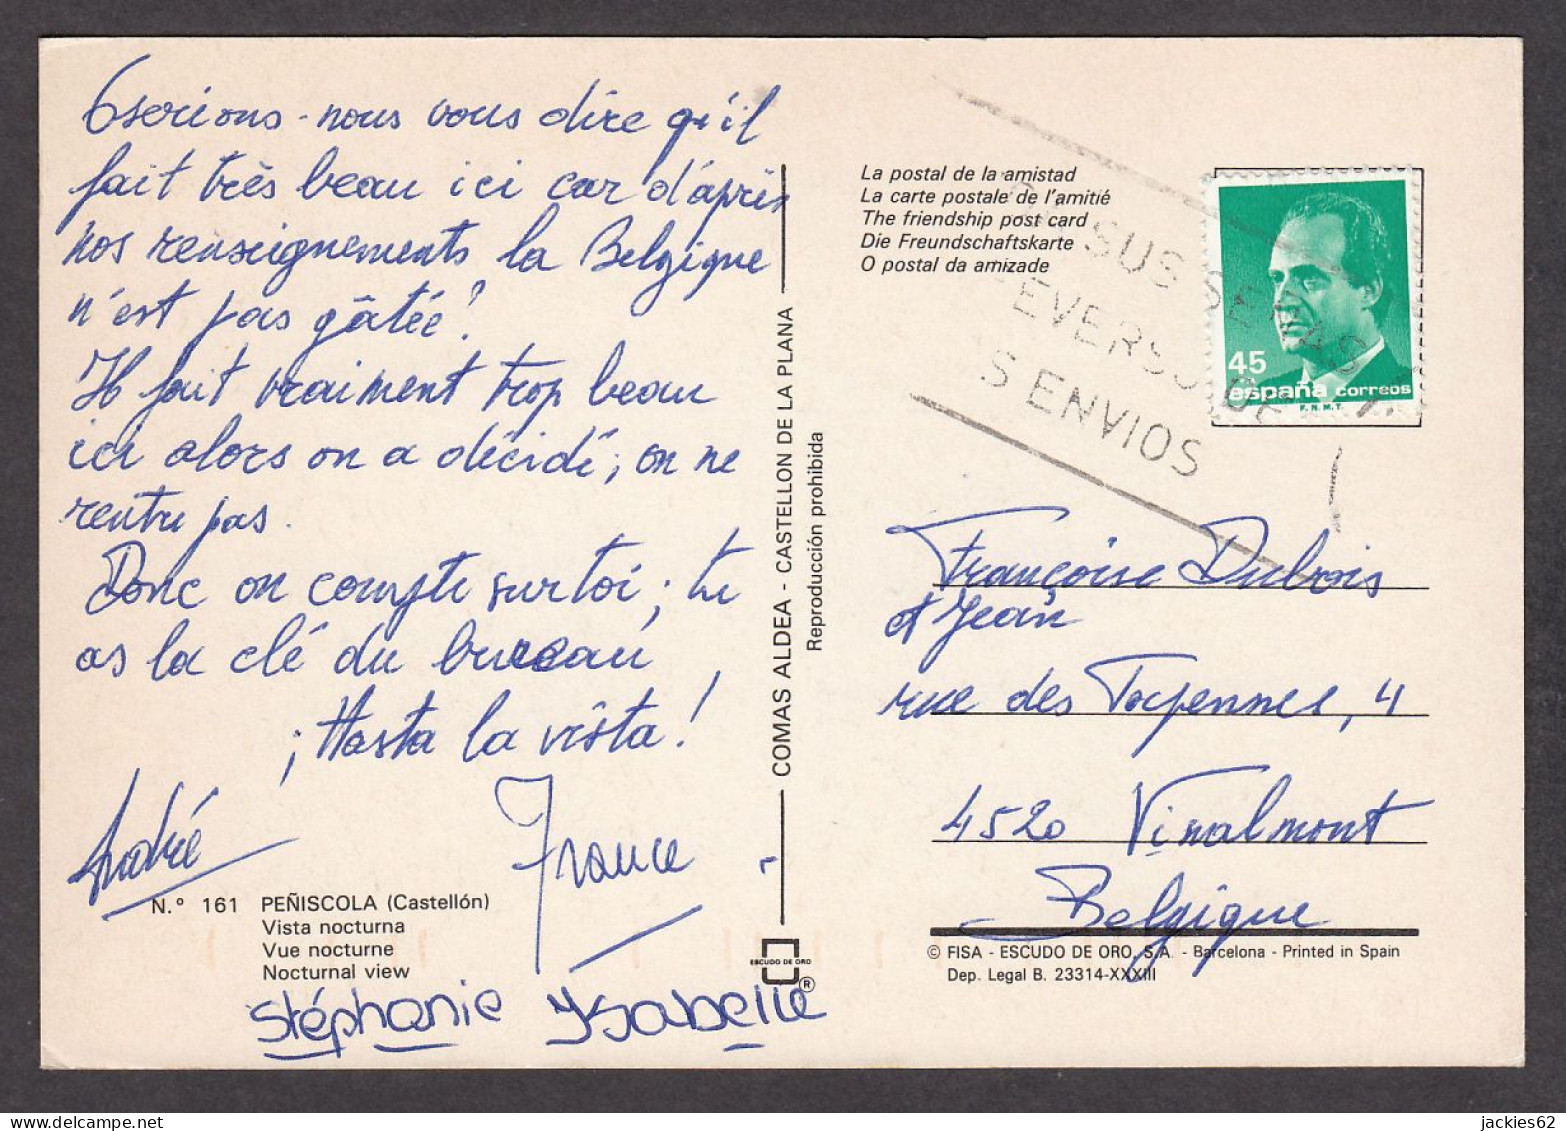 Oserions-nous vous dire qu'il
fait très beau ici car d'après
nos renseignements la Belgique
n'est pas gâtée?
Il fait vraiment trop beau
ici alors on a décidé; on ne
rentre pas.
Donc on compte sur toi; tu
as la clé du bureau
¡Hasta la vista!
André
France
N.º 161 PEÑISCOLA (Castellón)
Vista nocturna
Vue nocturne
Nocturnal view
Stéphanie Ysabelle
COMAS ALDEA - CASTELLON DE LA PLANA
Reproducción prohibida
ESCUDO DE ORO
®
La postal de la amistad
La carte postale de l'amitié
The friendship post card
Die Freundschaftskarte
O postal da amizade
SUS SEÑAS
REVERSO DE
S ENVIOS
45
españa correos
F.N.M.T.
Françoise Dubois
et Jean
rue des 4
4520 Vinalmont
Belgique
© FISA - ESCUDO DE ORO, S.A. - Barcelona - Printed in Spain
Dep. Legal B. 23314-XXXIII
jackies62